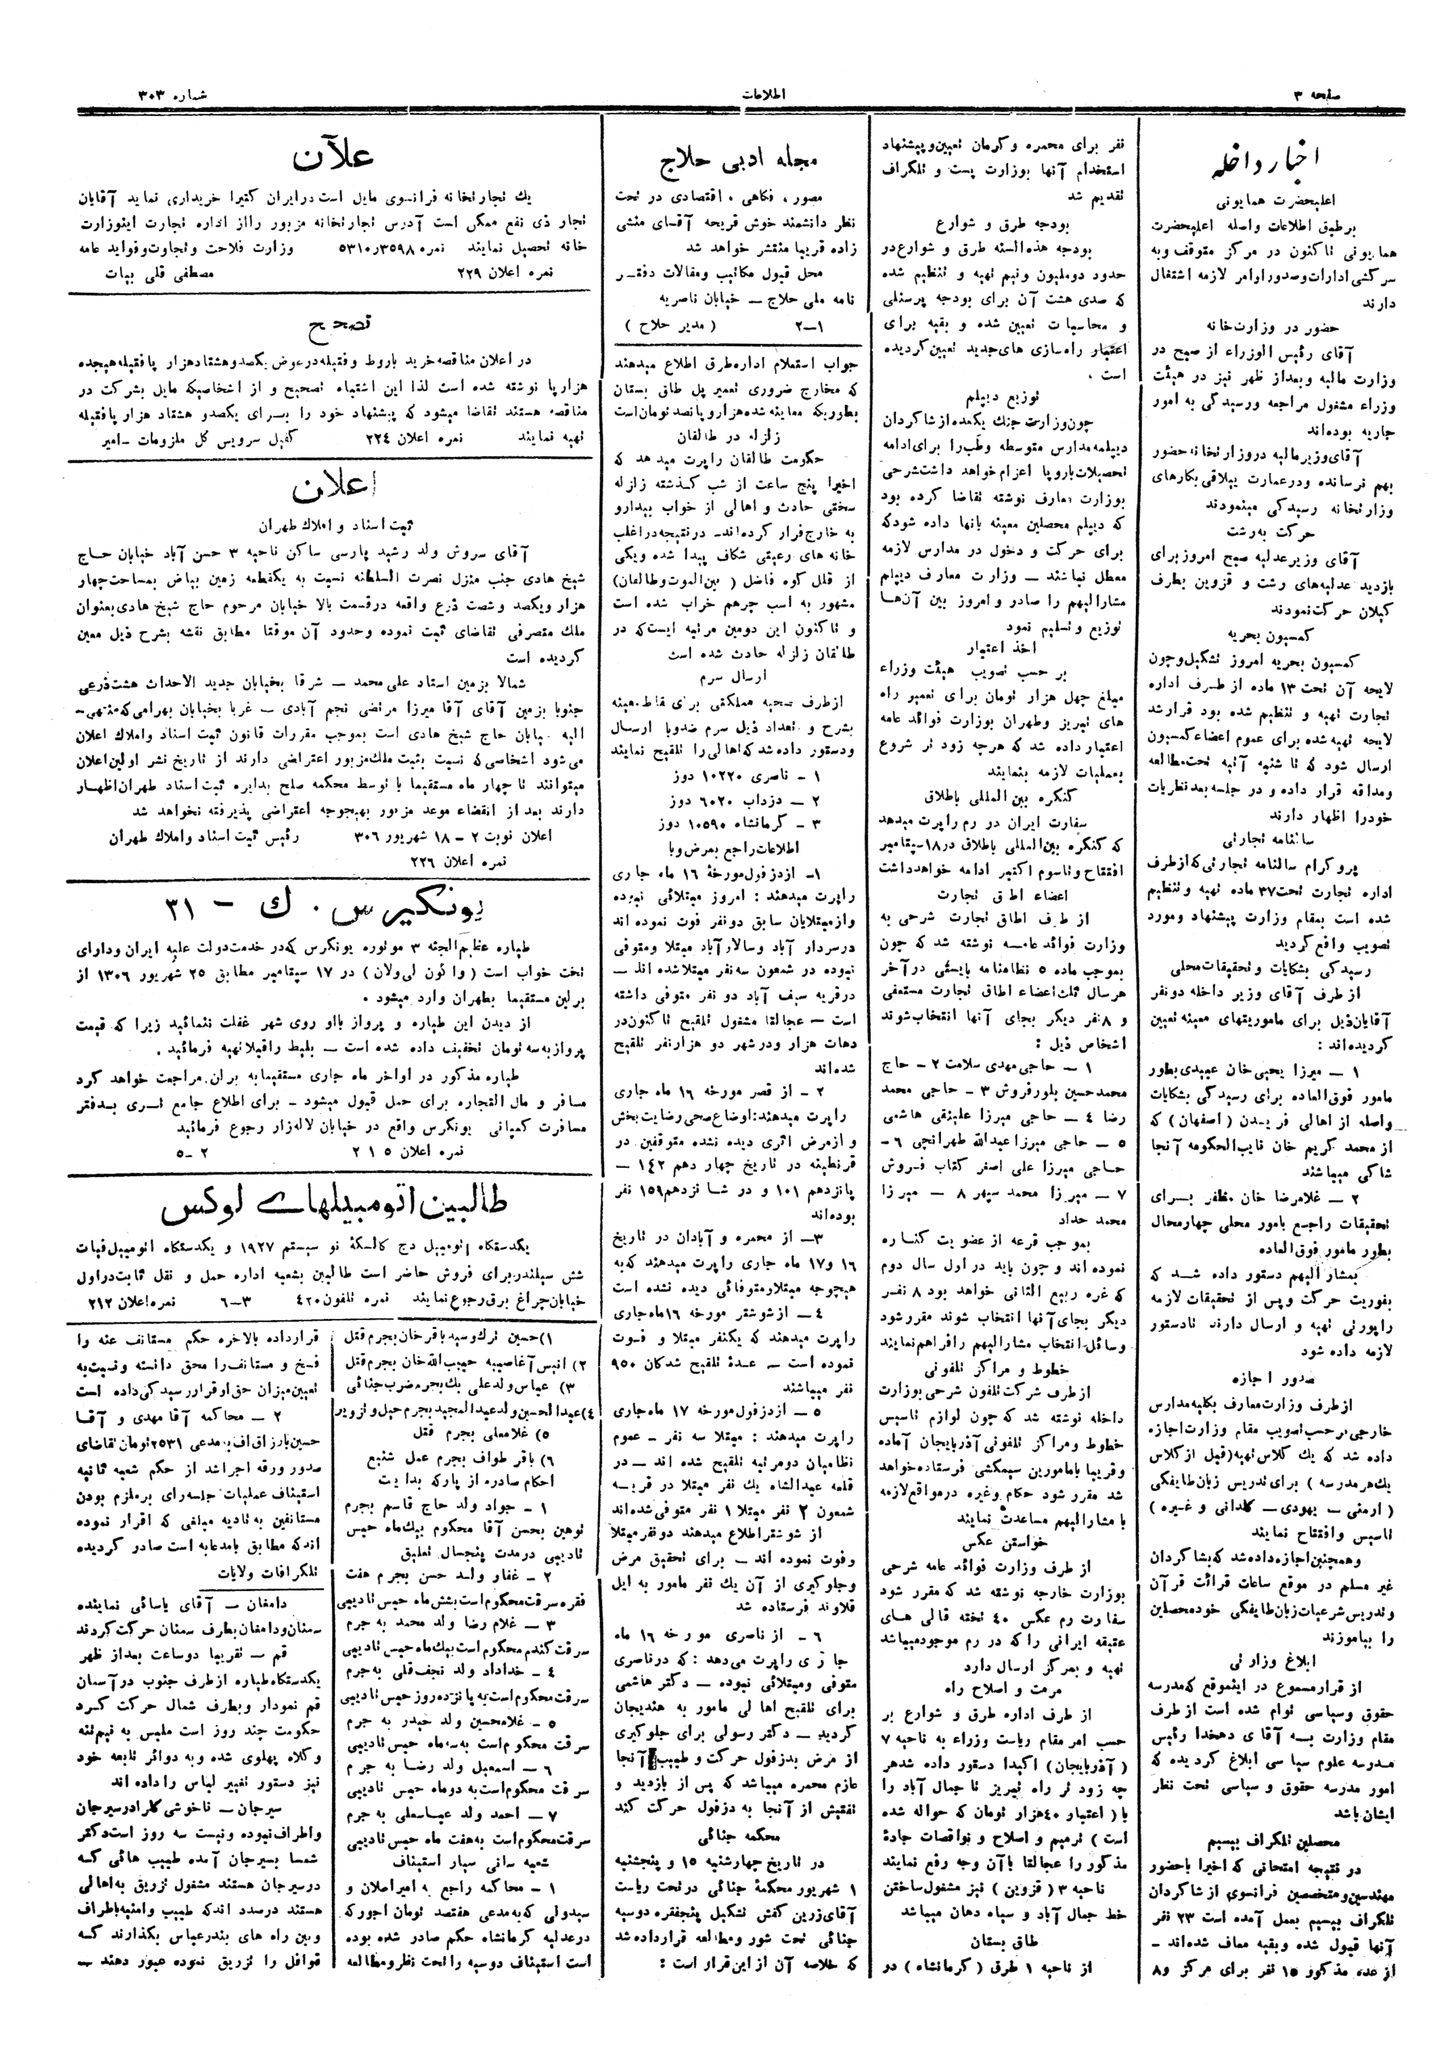 صفحه ۳
اطلاعات
شماره ۳۰۳
اخبار داخله
اعلیحضرت همایونی
برطبق اطلاعات واصله اعلیحضرت
همایونی تاکنون در مرکز متوقف و به
سرکشی ادارات و صدور اوامر لازمه اشتغال
دارند
حضور در وزارت خانه
آقای رئیس الوزراء از صبح در
وزارت مالیه و بعداز ظهر نیز در هیئت
وزراء مشغول مراجعه و رسیدگی به امور
جاریه بوده‌اند
آقای وزیر مالیه دروزارتخانه حضور
بهم نرسانده ودرعمارت ییلاقی بکارهای
وزارتخانه رسیدگی مینمودند
حرکت به رشت
آقای وزیر عدلیه صبح امروز برای
بازدید عدلیه‌های رشت و قزوین بطرف
گیلان حرکت نمودند
کمسیون بحریه
کمسیون بحریه امروز تشکیل وچون
لایحه آن تحت ۱۳ ماده از طرف اداره
تجارت تهیه و تنظیم شده بود قرارشد
لایحه تهیه شده برای عموم اعضاء کمسیون
ارسال شود که تا شنبه آتیه تحت مطالعه
ومداقه قرار داده و در جلسه بعد نظریات
خودرا اظهار دارند
سالنامه تجارتی
پروگرام سالنامه تجارتی که ازطرف
اداره تجارت تحت ۳۷ ماده تهیه و تنظیم
شده است بمقام وزارت پیشنهاد و مورد
تصویب واقع گردید
رسیدگی بشکایات و تحقیقات محلی
از طرف آقای وزیر داخله دو نفر
آقایان ذیل برای ماموریتهای معینه تعیین
گردیده‌اند :
۱ — میرزا یحیی خان عبیدی بطور
مامور فوق العاده برای رسیدگی بشکایات
واصله از اهالی فریدن (اصفهان) که
از محمد کریم خان نایب الحکومه آنجا
شاکی میباشند
۲ — غلامرضا خان مظفر برای
تحقیقات راجع بامور محلی چهارمحال
بطور مامور فوق العاده
بمشارالیهم دستور داده شد که
بفوریت حرکت و پس از تحقیقات لازمه
راپورتی تهیه و ارسال دارند تادستور
لازمه داده شود
صدور اجازه
ازطرف وزارت معارف بکلیه مدارس
خارجی برحسب تصویب مقام وزارت اجازه
داده شد که یك کلاس تهیه (قبل از کلاس
یك هر مدرسه ) برای تدریس زبان طایفگی
( ارمنی — یهودی — کلدانی و غیره )
تاسیس و افتتاح نمایند
وهمچنین اجازه داده شد که بشاگردان
غیر مسلم در موقع ساعات قرائت قرآن
وتدریس شرعیات زبان طایفگی خود محصلین
را بیاموزند
ابلاغ وزارتی
از قرار مسموع در اینموقع که مدرسه
حقوق وسیاسی توام شده است از طرف
مقام وزارت به آقای دهخدا رئیس
مدرسه علوم سیاسی ابلاغ گردیده که
امور مدرسه حقوق و سیاسی تحت نظر
ایشان باشد
محصلین تلگراف بیسیم
در نتیجه امتحانی که اخیرا باحضور
مهندسین و متخصصین فرانسوی از شاگردان
تلگراف بیسیم بعمل آمده است ۲۳ نفر
آنها قبول شده و بقیه معاف شده‌اند —
از عده مذکور ۱۵ نفر برای مرکز و ۸
نفر برای محمره و کرمان تعیین و پیشنهاد
استخدام آنها بوزارت پست و تلگراف
تقدیم شد
بودجه طرق و شوارع
بودجه هذه السنه طرق و شوارع در
حدود دوملیون و نیم تهیه و تنظیم شده
که صدی هشت آن برای بودجه پرسنلی
و محاسبات تعیین شده و بقیه برای
اعتبار راه سازی های جدید تعیین گردیده
است .
توزیع دیپلم
چون وزارت جنك یکعده از شاگردان
دیپلمه مدارس متوسطه و طب را برای ادامه
تحصیلات باروپا اعزام خواهد داشت شرحی
بوزارت معارف نوشته تقاضا کرده بود
که دیپلم محصلین معینه بآنها داده شود که
برای حرکت و دخول در مدارس لازمه
معطل نباشند — وزارت معارف دیپلم
مشارالیهم را صادر و امروز بین آن‌ها
توزیع و تسلیم نمود
اخذ اعتبار
بر حسب تصویب هیئت وزراء
مبلغ چهل هزار تومان برای تعمیر راه
های تبریز و طهران بوزارت فوائد عامه
اعتبار داده شد که هرچه زود تر شروع
بعملیات لازمه بنمایند
کنگره بین المللی باطلاق
سفارت ایران در رم راپرت میدهد
که کنگره بین المللی باطلاق در ۱۸ سپتامبر
افتتاح و تاسوم اکتبر ادامه خواهد داشت
اعضاء اطاق تجارت
از طرف اطاق تجارت شرحی به
وزارت فوائد عامه نوشته شد که چون
بموجب ماده ۵ نظامنامه بایستی در آخر
هر سال ثلث اعضاء اطاق تجارت مستعفی
و ۸ نفر دیگر بجای آنها انتخاب شوند
اشخاص ذیل :
۱ — حاجی مهدی سلامت ۲ — حاج
محمد حسین بلور فروش ۳ — حاجی محمد
رضا ۴ — حاجی میرزا علینقی هاشمی
۵ — حاجی میرزا عبدالله طهرانچی ۶ —
حاجی میرزا علی اصغر کتاب فروش
۷ — میرزا محمد سپهر ۸ — میرزا
محمد حداد
بموجب قرعه از عضویت کناره
نموده اند و چون باید در اول سال دوم
که غره ربیع الثانی خواهد بود ۸ نفر
دیگر بجای آنها انتخاب شوند مقرر شود
وسائل انتخاب مشارالیهم را فراهم نمایند
خطوط و مراکز تلفونی
از طرف شرکت تلفون شرحی بوزارت
داخله نوشته شد که چون لوازم تاسیس
خطوط و مراکز تلفونی آذربایجان آماده
وقریبا بامامورین سیمکشی فرستاده خواهد
شد مقرر شود حکام وغیره درمواقع لازمه
با مشارالیهم مساعدت نمایند
خواستن عکس
از طرف وزارت فوائد عامه شرحی
بوزارت خارجه نوشته شد که مقرر شود
سفارت رم عکس ۴۰ تخته قالی های
عتیقه ایرانی را که در رم موجود میباشد
تهیه و بمرکز ارسال دارد
مرمت و اصلاح راه
از طرف اداره طرق و شوارع بر
حسب امر مقام ریاست وزراء به ناحیه ۷
( آذربایجان ) اکیدا دستور داده شد هر
چه زود تر راه تبریز تا جمال آباد را
با ( اعتبار ۴۰ هزار تومان که حواله شده
است ) ترمیم و اصلاح و نواقصات جادهٔ
مذکور را عجالتا باآن وجه رفع نمایند
ناحیه ۳ ( قزوین ) نیز مشغول ساختن
خط جمال آباد و سیاه دهان میباشد
طاق بستان
از ناحیه ۱ طرق ( کرمانشاه ) در
مجله ادبی حلاج
مصور ، فکاهی ، اقتصادی در تحت
نظر دانشمند خوش قریحه آقای منشی
زاده قریبا منتشر خواهد شد
محل قبول مکاتیب و مقالات دفتر
نامه ملی حلاج — خیابان ناصریه
۲—۱ ( مدیر حلاج )
جواب استعلام اداره طرق اطلاع میدهند
که مخارج ضروری تعمیر پل طاق بستان
بطوریکه معاینه شده هزار و پانصد تومان است
زلزله در طالقان
حکومت طالقان راپرت میدهد که
اخیرا پنج ساعت از شب گذشته زلزله
سختی حادث و اهالی از خواب بیدار و
به خارج فرار کرده‌اند — درنتیجه دراغلب
خانه های رعیتی شکاف پیدا شده ویکی
از قلل کوه فاضل ( بین الموت و طالقان)
مشهور به اسب چرهم خراب شده است
و تاکنون این دومین مرتبه ایست که در
طالقان زلزله حادث شده است
ارسال سرم
ازطرف صحیه مملکتی برای نقاط معینه
بشرح و تعداد ذیل سرم ضدوبا ارسال
ودستور داده شد که اهالی را تلقیح نمایند
۱ — ناصری ۱۰۲۲۰ دوز
۲ — دزداب ۶۰۲۰ دوز
۳ — کرمانشاه ۱۰۵۹۰ دوز
اطلاعات راجع بمرض وبا
۱— ازدزفول مورخهٔ ۱۶ ماه جاری
راپرت میدهند : امروز مبتلائی نبوده
وازمبتلایان سابق دو نفر فوت نموده اند
درسردار آباد و سالارآباد مبتلا ومتوفی
نبوده در شمعون سه نفر مبتلاشده اند —
درقریه سیف آباد دو نفر متوفی داشته
است — عجالتا مشغول تلقیح تاکنون در
دهات هزار و در شهر دو هزار نفر تلقیح
شده‌اند
۲ — از قصر مورخه ۱۶ ماه جاری
راپرت میدهند: اوضاع صحی رضایت بخش
و ازمرض اثری دیده نشده متوقفین در
قرنطینه در تاریخ چهار دهم ۱۴۲ —
پانزدهم ۱۰۱ و در شانزدهم ۱۵۹ نفر
بوده‌اند
۳— از محمره و آبادان در تاریخ
۱۶ و ۱۷ ماه جاری راپرت میدهند که به
هیچوجه مبتلا و متوفائی دیده نشده است
۴ — از شوشتر مورخه ۱۶ ماه جاری
راپرت میدهند که یکنفر مبتلا و فوت
نموده است — عدهٔ تلقیح شدگان ۹۵۰
نفر میباشند
۵ — ازدزفول مورخه ۱۷ ماه جاری
راپرت میدهند : مبتلا سه نفر — عموم
نظامیان دومرتبه تلقیح شده اند — در
قلعه عبدالشاه یك نفر مبتلا در قریه
شمعون ۲ نفر مبتلا ۱ نفر متوفی شده‌اند
از شوشتر اطلاع میدهند دونفر مبتلا
وفوت نموده اند — برای تحقیق مرض
وجلوگیری از آن یك نفر مامور به ایل
قلاوند فرستاده شد
۶ — از ناصری مورخه ۱۶ ماه
جاری راپرت می‌دهد : که درناصری
متوفی ومبتلائی نبوده — دکتر هاشمی
برای تلقیح اهالی مامور به هندیجان
گردید — دکتر رسولی برای جلوگیری
از مرض بدزفول حرکت و طبیب آنجا
عازم محمره میباشد که پس از بازدید و
تفتیش از آنجا به دزفول حرکت کند
محکمه جنائی
در تاریخ چهارشنبه ۱۵ و پنجشنبه
۱ شهریور محکمهٔ جنائی در تحت ریاست
آقای زرین کفش تشکیل پنجفقره دوسیه
جنائی تحت شور و مطالعه قرار داده شد
که خلاصه آن از این قرار است :
علآن
یك تجارتخانه فرانسوی مایل است درایران کتیرا خریداری نماید آقایان
تجار ذی نفع ممکن است آدرس تجارتخانه مزبور رااز اداره تجارت اینوزارت
خانه تحصیل نمایند نمره ۳۵۹۸ر۵۳۱۰ وزارت فلاحت وتجارت وفواید عامه
نمره اعلان ۲۲۹ مصطفی قلی بیات
تصحح
در اعلان مناقصه خرید باروط و فتیله درعوض یکصد وهشتاد هزار پا فتیله هیجده
هزار پا نوشته شده است لذا این اشتباه تصحیح و از اشخاصیکه مایل بشرکت در
مناقصه هستند تقاضا میشود که پیشنهاد خود را برای یکصدو هشتاد هزار پا فتیله
تهیه نمایند نمره اعلان ۲۲۴ کفیل سرویس کل ملزومات —امیر
اعلان
ثبت اسناد و املاك طهران
آقای سروش ولد رشید پارسی ساکن ناحیه ۳ حسن آباد خیابان حاج
شیخ هادی جنب منزل نصرت السلطانه نسبت به یکقطعه زمین بیاض بمساحت چهار
هزار ویکصد و شصت ذرع واقعه درقسمت بالا خیابان مرحوم حاج شیخ هادی بعنوان
ملك متصرفی تقاضای ثبت نموده وحدود آن موقتا مطابق نقشه بشرح ذیل معین
گردیده است
شمالا بزمین استاد علی محمد — شرقا بخیابان جدید الاحداث هشت ذرعی
جنوبا بزمین آقای آقا میرزا مرتضی نجم آبادی — غربا بخیابان بهرامی که منتهی—
الیه خیابان حاج شیخ هادی است بموجب مقررات قانون ثبت اسناد واملاك اعلان
می‌شود اشخاصی که نسبت بثبت ملك مزبور اعتراضی دارند از تاریخ نشر اولین اعلان
میتوانند تا چهار ماه مستقیما یا توسط محکمه صلح بدایره ثبت اسناد طهران اظهار
دارند بعد از انقضاء موعد مزبور بهیچوجه اعتراضی پذیرفته نخواهد شد
اعلان نوبت ۲ — ۱۸ شهریور ۳۰۶ رئیس ثبت اسناد واملاك طهران
نمره اعلان ۲۲۶
یونکرس . ك — ۳۱
طیاره عظیم الجثه ۳ موتوره یونکرس که در خدمت دولت علیه ایران و دارای
تخت خواب است ( واگون لی ولان) در ۱۷ سپتامبر مطابق ۲۵ شهریور ۱۳۰۶ از
برلین مستقیما بطهران وارد میشود .
از دیدن این طیاره و پرواز بااو روی شهر غفلت ننمائید زیرا که قیمت
پرواز به سه تومان تخفیف داده شده است — بلیط راقبلا تهیه فرمائید .
طیاره مذکور در اواخر ماه جاری مستقیما به برلن مراجعت خواهد کرد
مسافر و مال التجاره برای حمل قبول میشود — برای اطلاع جامع تری بدفتر
مسافرت کمپانی یونکرس واقع در خیابان لاله‌زار رجوع فرمائید
نمره اعلان ۲۱۵ ۲ —۵
طالبین اتومبیلهای لوکس
یکدستگاه اتومبیل دج کالسکهٔ نو سیستم ۱۹۲۷ و یکدستگاه اتومبیل فیات
شش سیلندر برای فروش حاضر است طالبین بشعبه اداره حمل و نقل ثابت در اول
خیابان چراغ برق رجوع نمایند نمره تلفون ۴۲۰ ۳—۶ نمره اعلان ۲۱۲
۱) حسین ترك و سید باقر خان بجرم قتل
۲) انیس آغا صبیه حبیب الله خان بجرم قتل
۳) عباس ولد علی بك بجرم ضرب جنائی
۴) عبدالحسین ولد عبدالمجید بجرم جعل و تزویر
۵) غلامعلی بجرم قتل
۶) باقر طواف بجرم عمل شنیع
احکام صادره از پارکه بدایت
۱ — جواد ولد حاج قاسم بجرم
توهین بحسن آقا محکوم بیك ماه حبس
تادیبی درمدت پنجسال تعلیق
۲ — غفار ولد حسن بجرم هفت
فقره سرقت محکوم است بشش ماه حبس تادیبی
۳ — غلام رضا ولد محمد به جرم
سرقت گندم محکوم است بیك ماه حبس تادیبی
۴ — خداداد ولد نجف قلی به جرم
سرقت محکوم است به پانزده روز حبس تادیبی
۵ — غلامحسین ولد حیدر به جرم
سرقت محکوم است به سه ماه حبس تادیبی
۶ — اسمعیل ولد رضا به جرم
سرقت محکوم است به دو ماه حبس تادیبی
۷ — احمد ولد عباسعلی به جرم
سرقت محکوم است به هفت ماه حبس تادیبی
شعبه سانی سیار استیناف
۱ — محاکمه راجع به امیراعلان و
سیدولی که به مدعی هفتصد تومان اجور که
درعدلیه کرمانشاه حکم صادر شده بوده
است استیناف دوسیه را تحت نظر و مطالعه
قرارداده بالاخره حکم مستانف عنه را
فسخ و مستانف را محق دانسته ونسبت به
تعیین میزان حق او قرار رسیدگی داده است
۲ — محاکمه آقا مهدی و آقا
حسین بارزاق اف به مدعی ۲۵۳۱ تومان تقاضای
صدور ورقه اجرا شد از حکم شعبه ثانیه
استیناف عملیات جلسه رای برملزم بودن
مستانفین به تادیه مبلغی که اقرار نموده
اند که مطابق بامدعابه است صادر گردیده
تلگرافات ولایات
دامغان — آقای یاسائی نماینده
سمنان و دامغان بطرف سمنان حرکت کردند
قم — تقریبا دوساعت بعداز ظهر
یکدستگاه طیاره ازطرف جنوب در آسمان
قم نمودار وبطرف شمال حرکت کرد
حکومت چند روز است ملبس به نیم تنه
وکلاه پهلوی شده و به دوائر تابعه خود
نیز دستور تغییر لباس را داده اند
سیرجان — ناخوشی کلرا در سیرجان
واطراف نبوده ونیست سه روز است دکتر
شمسا بسیرجان آمده طبیب هائی که
درسیرجان هستند مشغول تزریق به اهالی
هستند درصدد اند که طبیب وامنیه باطراف
وبین راه های بندرعباس بگذارند که
قوافل را تزریق نموده عبور دهند —